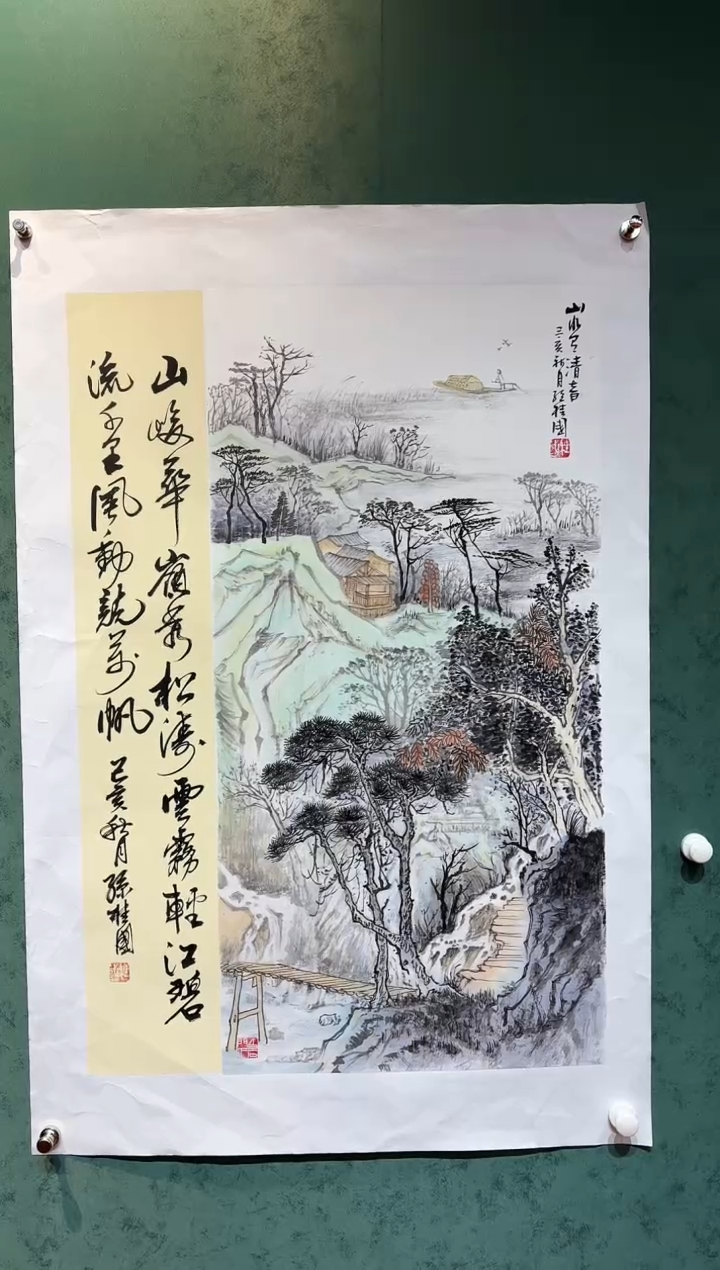 山水有清音
己亥秋月孫桂國
山峻華嶺秀松濤雲霧輕江碧
流千里風動競萬帆
己亥秋月孫桂國